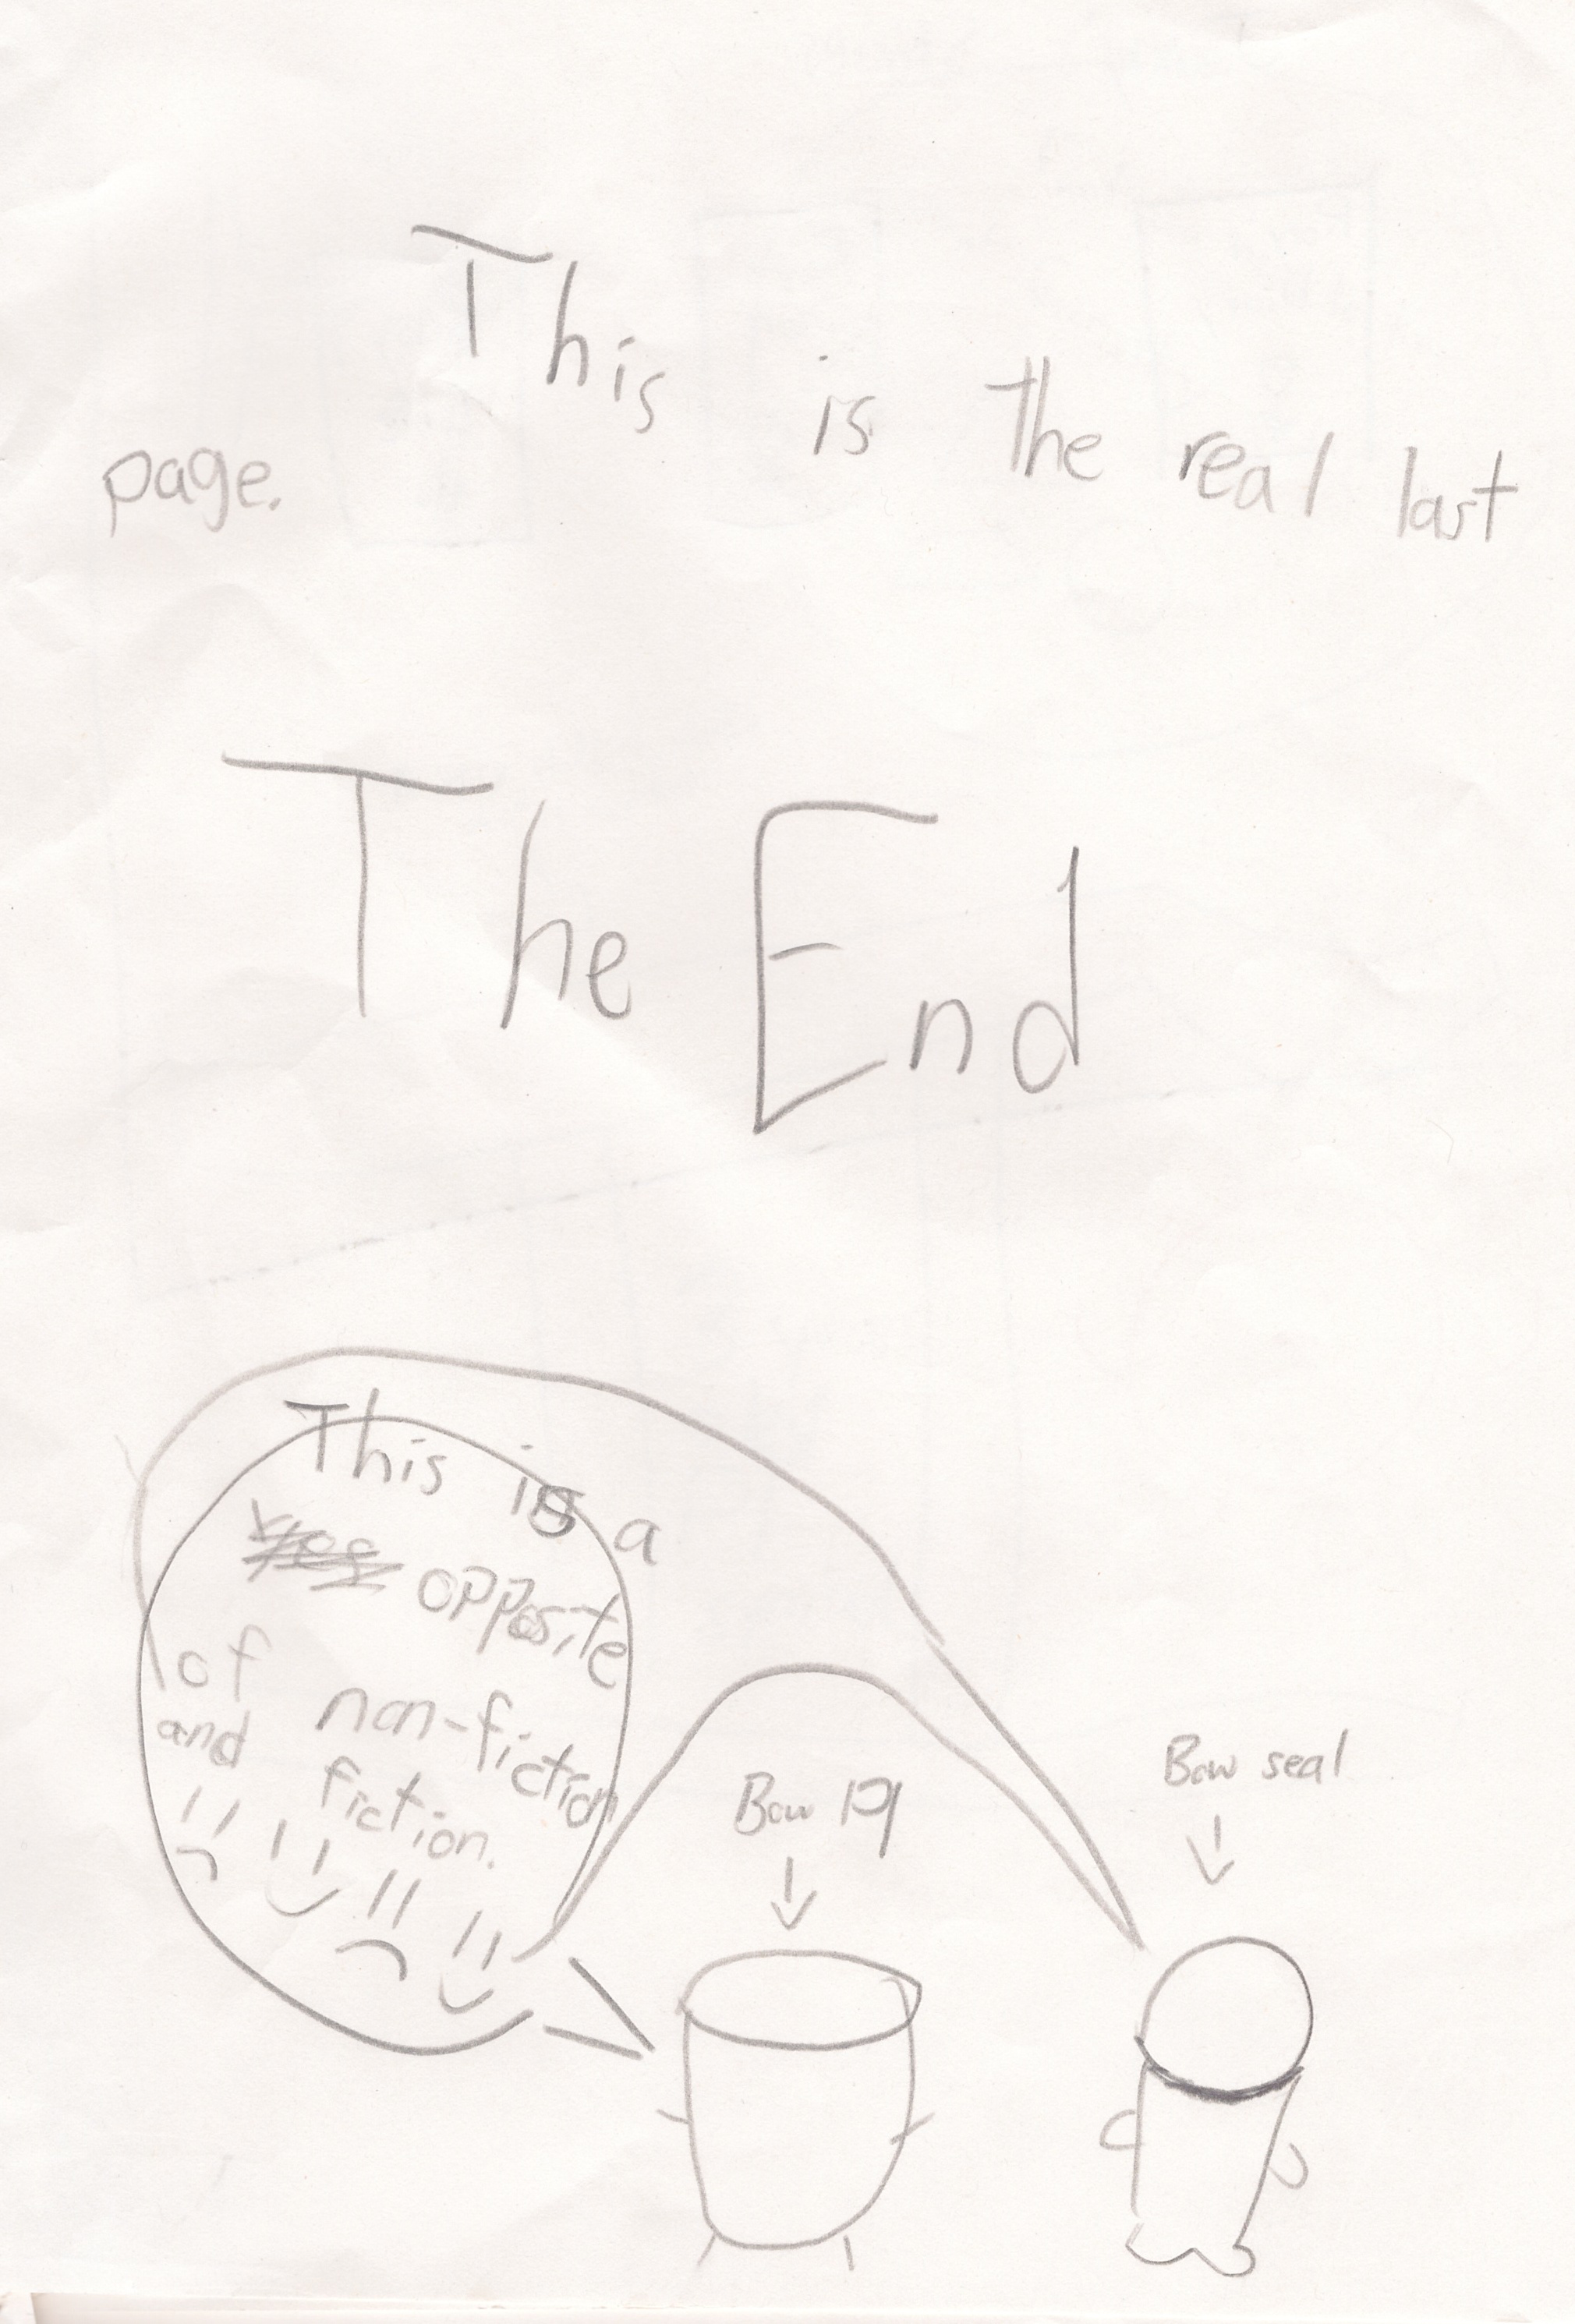 This is the real last
page.
The End
This is a
opposite
of non-fiction
and fiction.
Bow
Bow seal